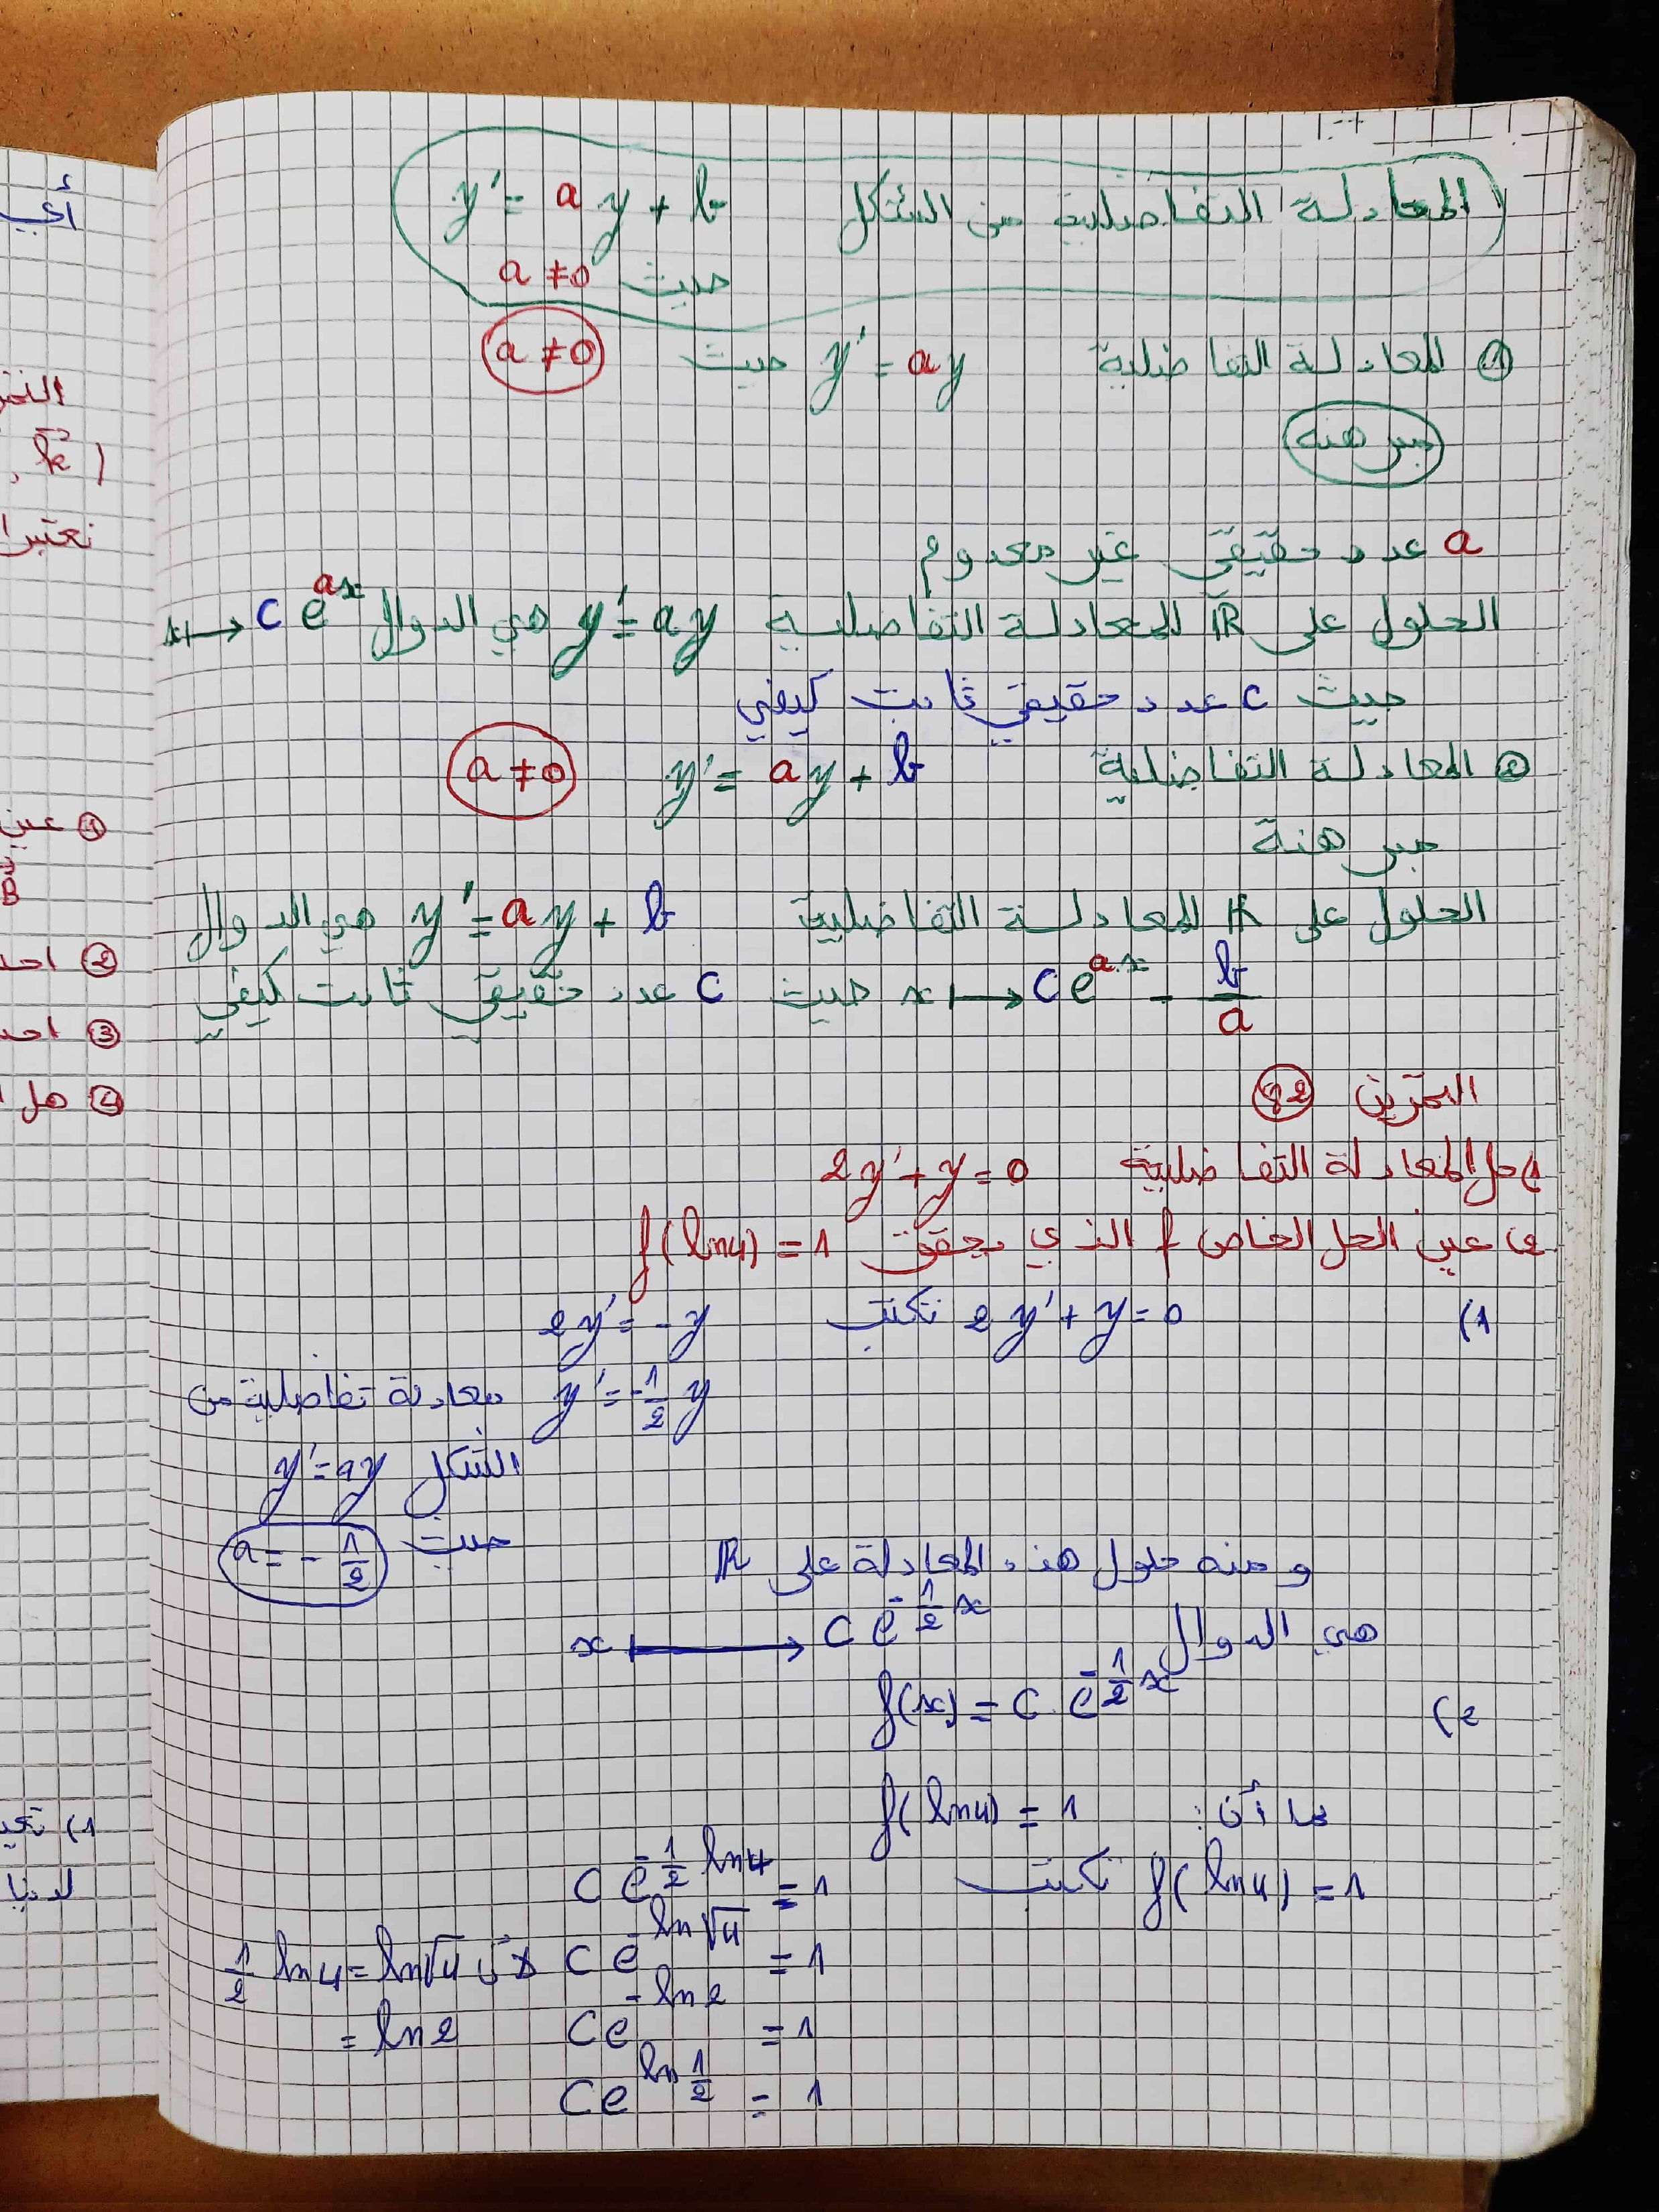 المعادلة التفاضلية من الشكل y' = a y + b
حيث a ≠ 0
① المعادلة التفاضلية y' = ay حيث a ≠ 0
مبرهنة
a عدد حقيقي غير معدوم
الحلول على ℝ للمعادلة التفاضلية y' = ay هي الدوال x ↦ C e^{ax}
حيث C عدد حقيقي ثابت كيفي
② المعادلة التفاضلية y' = ay + b a ≠ 0
مبرهنة
الحلول على ℝ للمعادلة التفاضلية y' = ay + b هي الدوال
x ↦ C e^{ax} - b/a حيث C عدد حقيقي ثابت كيفي
التمرين 82
1) حل المعادلة التفاضلية 2y' + y = 0
2) عين الحل الخاص f الذي يحقق f(ln4) = 1
1) 2y' + y = 0 تكتب 2y' = -y
y' = -1/2 y معادلة تفاضلية من
الشكل y' = ay
حيث a = -1/2
ومنه حلول هذه المعادلة على ℝ
هي الدوال x ⟼ C e^{-1/2 x}
2) f(x) = C e^{-1/2 x}
بما أن: f(ln4) = 1
f(ln4) = 1 تكتب C e^{-1/2 ln4} = 1
C e^{-ln√4} = 1 لأن 1/2 ln4 = ln√4
C e^{-ln2} = 1 = ln2
C e^{ln 1/2} = 1
أي
النقـ
(k⃗ ,
نعتبر ا
① عين
B
② احـ
③ احـ
④ هل ا
1)
لدينا